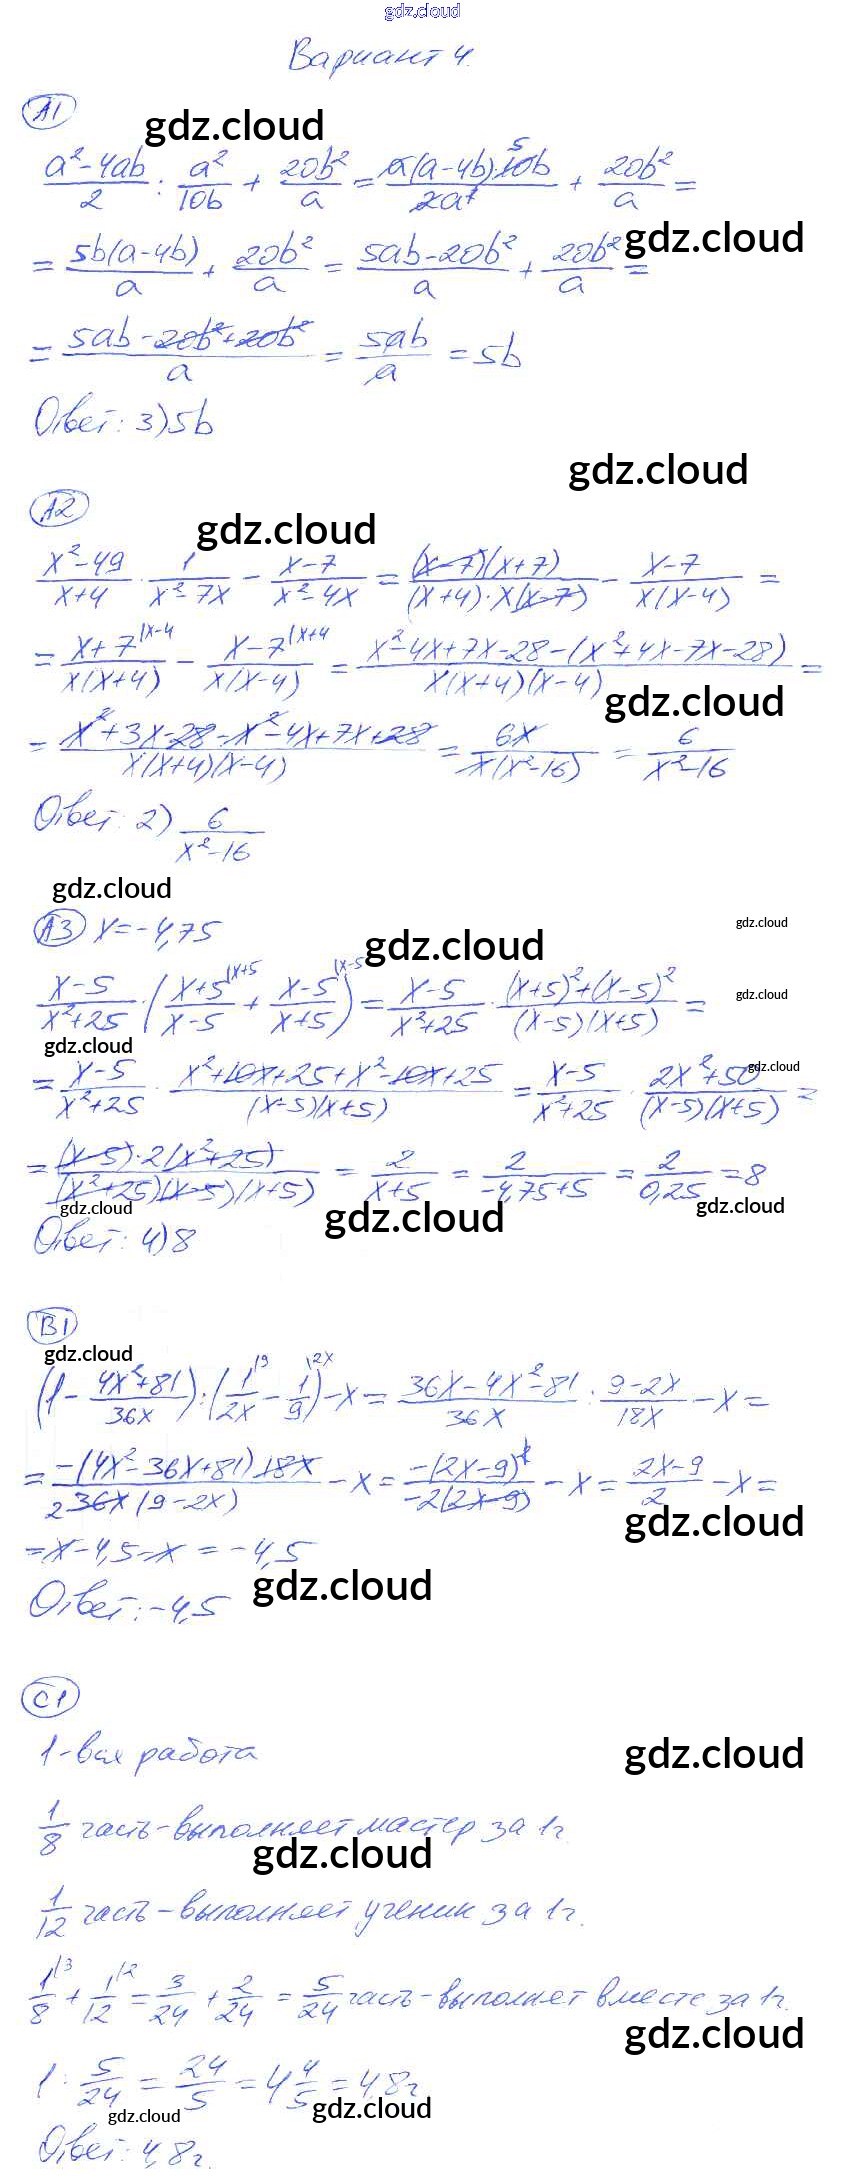 gdz.cloud
Вариант 4.
А1
gdz.cloud
(a²-4ab)/2 : a²/10b + 20b²/a = a(a-4b)·10b/2a² 5 1 + 20b²/a =
gdz.cloud
= 5b(a-4b)/a + 20b²/a = (5ab-20b²)/a + 20b²/a =
= (5ab-20b²+20b²)/a = 5ab/a = 5b
Ответ: 3) 5b
gdz.cloud
А2
gdz.cloud
(x²-49)/(x+4) · 1/(x²-7x) - (x-7)/(x²-4x) = (x-7)(x+7)/((x+4)·x(x-7)) - (x-7)/(x(x-4)) =
= (x+7)/(x(x+4)) (x-4 - (x-7)/(x(x-4)) (x+4 = (x²-4x+7x-28-(x²+4x-7x-28))/(x(x+4)(x-4)) =
gdz.cloud
= (x²+3x-28-x²-4x+7x+28)/(x(x+4)(x-4)) = 6x/(x(x²-16)) = 6/(x²-16)
Ответ: 2) 6/(x²-16)
gdz.cloud
А3 x=-4,75
gdz.cloud
gdz.cloud
(x-5)/(x²+25) · ((x+5)/(x-5) (x+5 + (x-5)/(x+5) (x-5) = (x-5)/(x²+25) · ((x+5)²+(x-5)²)/((x-5)(x+5)) =
gdz.cloud
gdz.cloud
gdz.cloud
= (x-5)/(x²+25) · (x²+10x+25+x²-10x+25)/((x-5)(x+5)) = (x-5)/(x²+25) · (2x²+50)/((x-5)(x+5)) =
= (x-5)·2(x²+25)/((x²+25)(x-5)(x+5)) = 2/(x+5) = 2/(-4,75+5) = 2/0,25 = 8
gdz.cloud
gdz.cloud
gdz.cloud
Ответ: 4) 8
В1
gdz.cloud
(1 - (4x²+81)/36x) : (1/2x (9 - 1/9 (2x) - x = (36x-4x²-81)/36x : (9-2x)/18x - x =
= -(4x²-36x+81)·18x/(2 36x(9-2x)) - x = -(2x-9)²/(-2(2x-9)) - x = (2x-9)/2 - x =
gdz.cloud
= x-4,5-x = -4,5
gdz.cloud
Ответ: -4,5
С1
1-вся работа
gdz.cloud
1/8 часть-выполняет мастер за 1ч.
gdz.cloud
1/12 часть-выполняет ученик за 1ч.
1/8 (3 + 1/12 (2 = 3/24 + 2/24 = 5/24 часть-выполнят вместе за 1ч.
gdz.cloud
1 : 5/24 = 24/5 = 4 4/5 = 4,8ч
gdz.cloud
gdz.cloud
Ответ: 4,8ч.